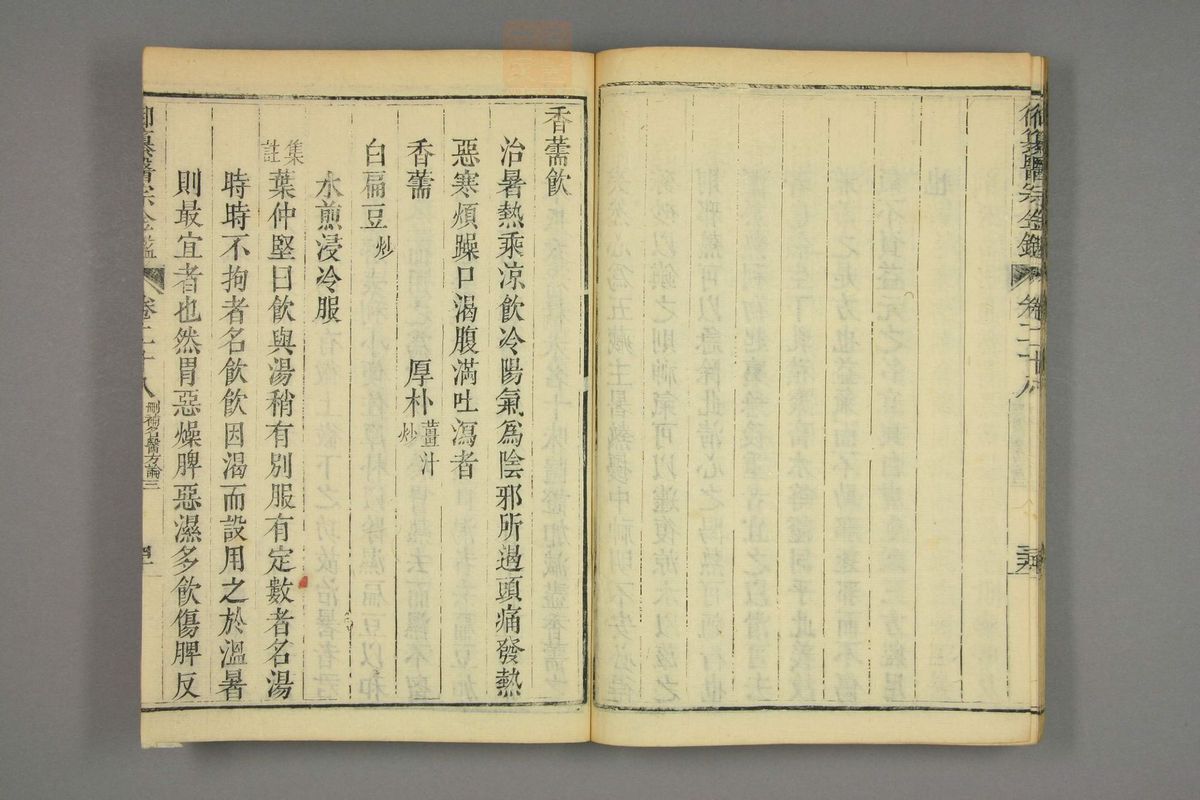 御纂醫宗金鑑
卷二十八
香薷飲
治暑熱乘涼飲冷陽氣爲陰邪所遏頭痛發熱
惡寒煩躁口渴腹滿吐瀉者
香薷 厚朴薑汁炒
白扁豆炒
水煎浸冷服
集註葉仲堅曰飲與湯稍有別服有定數者名湯
時時不拘者名飲飲因渴而設用之於溫暑
則最宜者也然胃惡燥脾惡濕多飲傷脾反
御纂醫宗金鑑 卷二十八 刪補名醫方論三